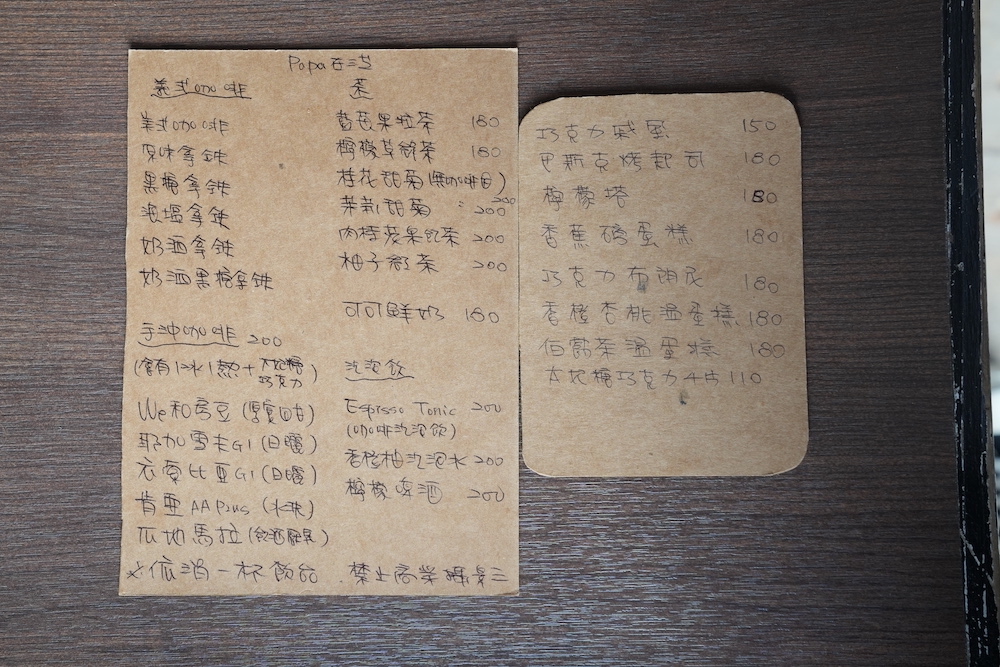 Papa在三芝
義式咖啡
美式咖啡
原味拿鐵
黑糖拿鐵
海塩拿鐵
奶酒拿鐵
奶酒黑糖拿鐵
手沖咖啡 200
(含有1冰1熱+太妃糖巧克力)
We和房豆(厚實回甘)
耶加雪夫G1(日曬)
衣索比亞G1(日曬)
肯亞AA Plus(水洗)
瓜地馬拉
茶
藍莓果粒茶 180
檸檬草紅茶 180
桂花甜菊(無咖啡因) 200
茉莉甜菊 〃 200
肉桂蘋果紅茶 200
柚子紅茶 200
可可鮮奶 180
汽泡飲
Esprsso Tonic 200
(咖啡汽泡飲)
香橙柚汽泡水 200
檸檬啤酒 200
※低消一杯飲品 禁止商業攝影
巧克力戚風 150
巴斯克烤起司 180
檸檬塔 180
香蕉磅蛋糕 180
巧克力布朗尼 180
香橙杏桃溫蛋糕 180
伯爵茶溫蛋糕 180
太妃糖巧克力4片 110